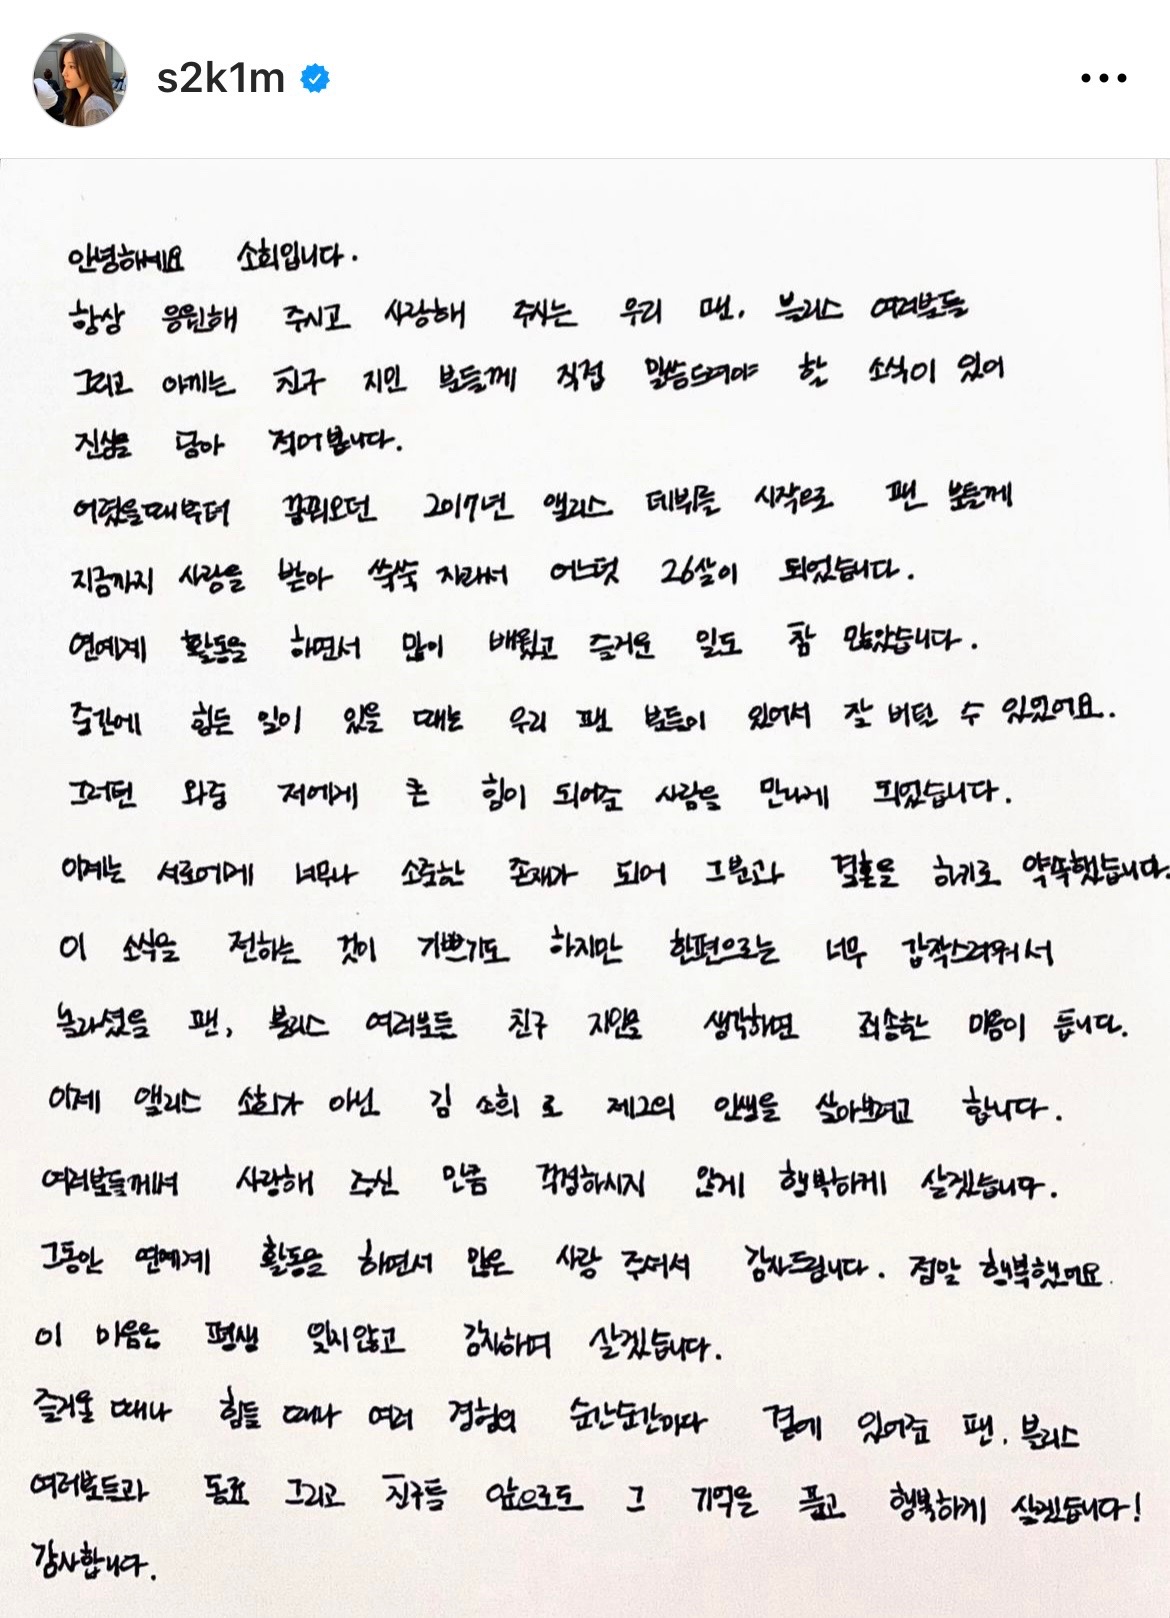 s2k1m
안녕하세요 소희입니다.
항상 응원해 주시고 사랑해 주시는 우리 팬, 블리스 여러분들
그리고 아끼는 친구 지인 분들께 직접 말씀드려야 할 소식이 있어
진심을 담아 적어봅니다.
어렸을때부터 꿈꿔오던 2017년 앨리스 데뷔를 시작으로 팬 분들께
지금까지 사랑을 받아 쑥쑥 자라서 어느덧 26살이 되었습니다.
연예계 활동을 하면서 많이 배웠고 즐거운 일도 참 많았습니다.
중간에 힘든 일이 있을 때는 우리 팬 분들이 있어서 잘 버틸 수 있었어요.
그러던 와중 저에게 큰 힘이 되어준 사람을 만나게 되었습니다.
이제는 서로에게 너무나 소중한 존재가 되어 그분과 결혼을 하기로 약속했습니다.
이 소식을 전하는 것이 기쁘기도 하지만 한편으로는 너무 갑작스러워서
놀라셨을 팬, 블리스 여러분들 친구 지인을 생각하면 죄송한 마음이 듭니다.
이제 앨리스 소희가 아닌 김소희로 제2의 인생을 살아보려고 합니다.
여러분들께서 사랑해 주신 만큼 걱정하시지 않게 행복하게 살겠습니다.
그동안 연예계 활동을 하면서 많은 사랑 주셔서 감사드립니다. 정말 행복했어요.
이 마음은 평생 잊지않고 감사하며 살겠습니다.
즐거울 때나 힘들 때나 여러 경험의 순간순간마다 곁에 있어준 팬, 블리스
여러분들과 동료 그리고 친구들 앞으로도 그 기억을 품고 행복하게 살겠습니다!
감사합니다.